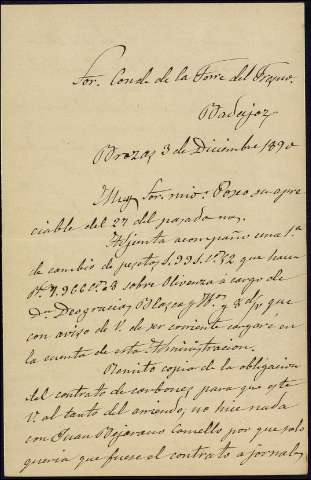 Sor. Conde de la Torre del Fresno.
Badajoz
Brozas 3 de Diciembre 1890
Muy Sor. mio: Poseo su apre
ciable del 27 del pasado nov.
Adjunta acompaño una 1ª
de cambio de pesetas que hace
sobre Olivenza á cargo de
Dn. Deogracias Blasco y y 8 d/v que
con aviso de V. de ser corriente cargaré en
la cuenta de esta Administracion.
Remito copia de la obligacion
del contrato de carbones para que este
V. al tanto del arriendo, no hice nada
con Juan Bejarano Camello por que solo
queria que fuese el contrato a jornal,